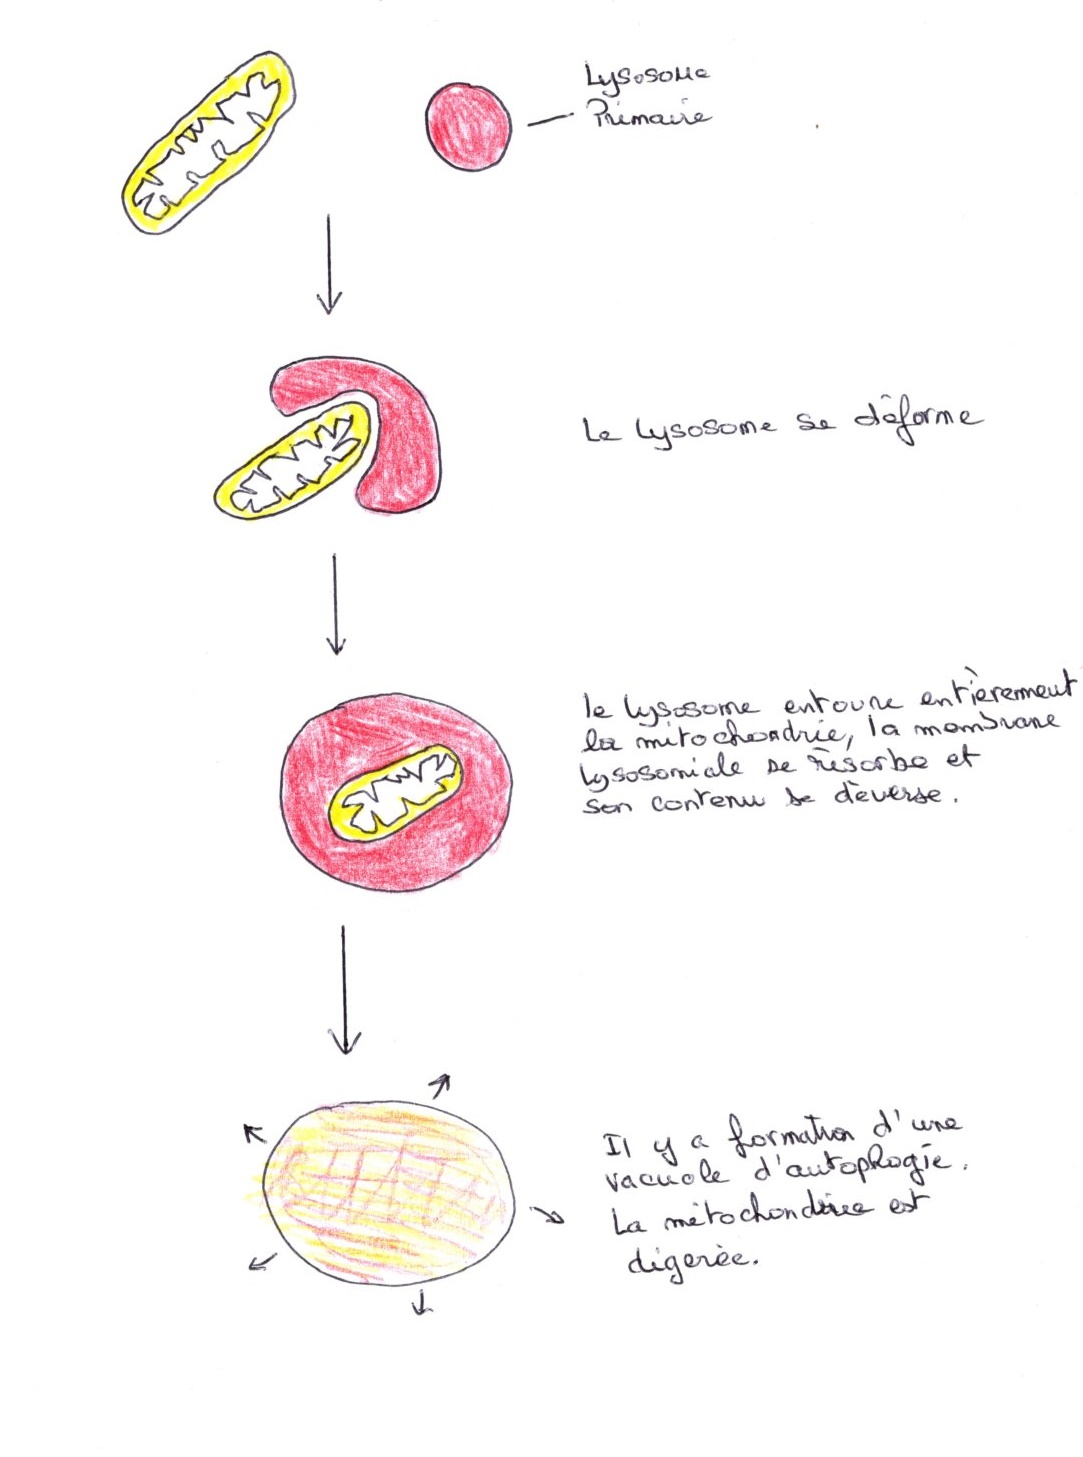 Lysosome
Primaire
Le lysosome se déforme
le lysosome entoure entièrement
la mitochondrie, la membrane
lysosomiale se résorbe et
son contenu se déverse.
Il y a formation d'une
vacuole d'autophagie.
La mitochondrie est
digérée.